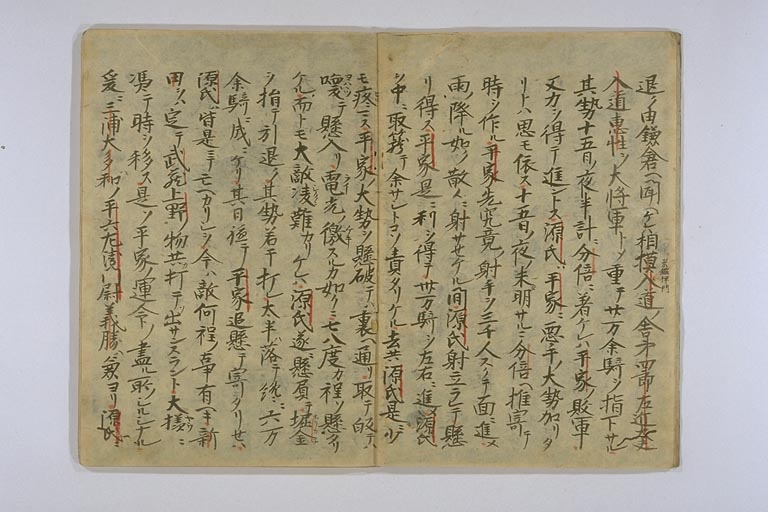 退ノ由鎌倉ヘ聞ヘケレハ相模入道舎弟四郎左近大夫
入道恵性ヲ大将軍トシ重テ廿万余騎ヲ指下サル
其勢十五日ノ夜半計分倍ニ着ケレハ平家ノ敗軍
又力ヲ得テ進ントス源氏ハ平家ニ悪手ノ大勢加リタ
リトハ思モ依ス十五日ノ夜未明サルニ分倍ヘ推寄テ
時ヲ作ル平家先究竟ノ射手ヲ三千人スクテ面ニ進メ
雨ノ降ル如ク散々ニ射サセケル間源氏射立ラレテ懸
リ得ス平家是ニ利ヲ得テ廿万騎ヲ左右ニ進メ源氏
ヲ中ニ取籠テ余サントコソ責タリケル去共源氏是ニ少
モ疼ス平家ノ大勢ヲ懸破テハ裏ヘ通リ取テ皈テハ
喚テ懸入リ電光ノ激スル如クニ七八度カ程ソ懸タリ
ケル而トモ大敵凌難カリケレハ源氏遂ニ懸負テ堀金
ヲ指テ引退ク其勢若干打レ太半落テ纔ニ六万
余騎ニ成ニケリ其日軈テ平家追懸テ寄タリセハ
源氏ハ皆是ニテモ亡ヘカリシヲ今ハ敵何程ノ事有ヘキ新
田ヲハ定テ武蔵上野ノ物共打テ出サンスラント大様ニ
馮テ時ヲ移ス是ソ平家ノ運命ノ盡ル所ノシルシナル
爰ニ三浦大多和ノ平六左衛門尉義勝ハ兼ヨリ源氏ニ